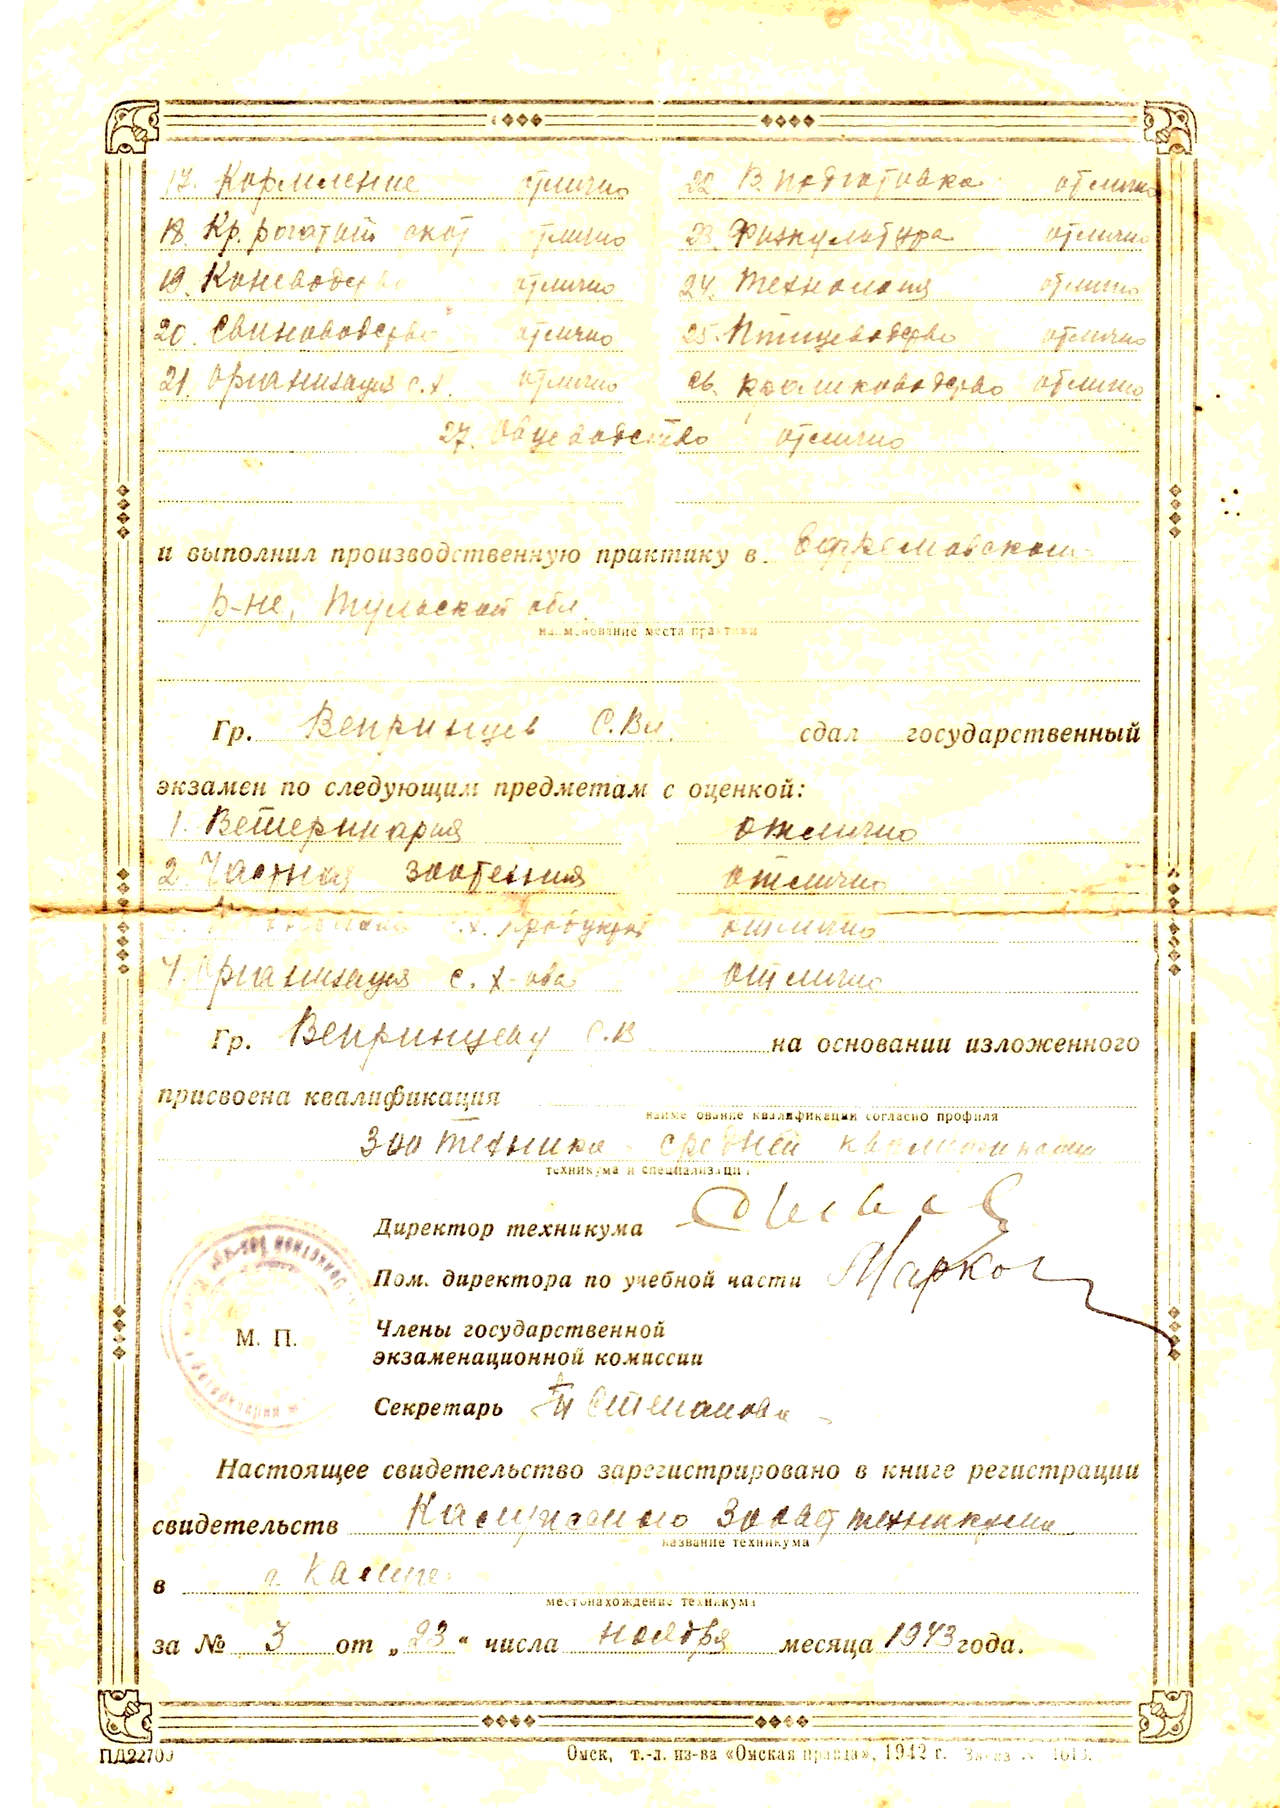 17. Кормление отлично 22. В. подготовка отлично
18. Кр. рогатый скот отлично 23. Физкультура отлично
19. Коневодство отлично 24. Технология отлично
20. Свиноводство отлично 25. Птицеводство отлично
21. Организация с.х. отлично 26. Кролиководство отлично
27. Овцеводство отлично
и выполнил производственную практику в Ефремовском
р-не, Тульской обл.
наименование места практики
Гр. Вепринцев С.Вл. сдал государственный
экзамен по следующим предметам с оценкой:
1. Ветеринария отлично
2. Частная зоотехния отлично
с.х. продуктов отлично
4. Организация с. х-ва отлично
Гр. Вепринцеву С.В. на основании изложенного
присвоена квалификация
наименование квалификации согласно профиля
Зоотехника средней квалификации
техникума и специализации
Директор техникума
Пом. директора по учебной части Марков
М. П.
Члены государственной
экзаменационной комиссии
Секретарь Степанова
Настоящее свидетельство зарегистрировано в книге регистрации
свидетельств Калужского Зооветтехникума
название техникума
в г. Калуге
местонахождение техникума
за № 3 от „23“ числа ноября месяца 1943 года.
ПД22709
Омск, т.-л. из-ва «Омская правда», 1942 г. Заказ №